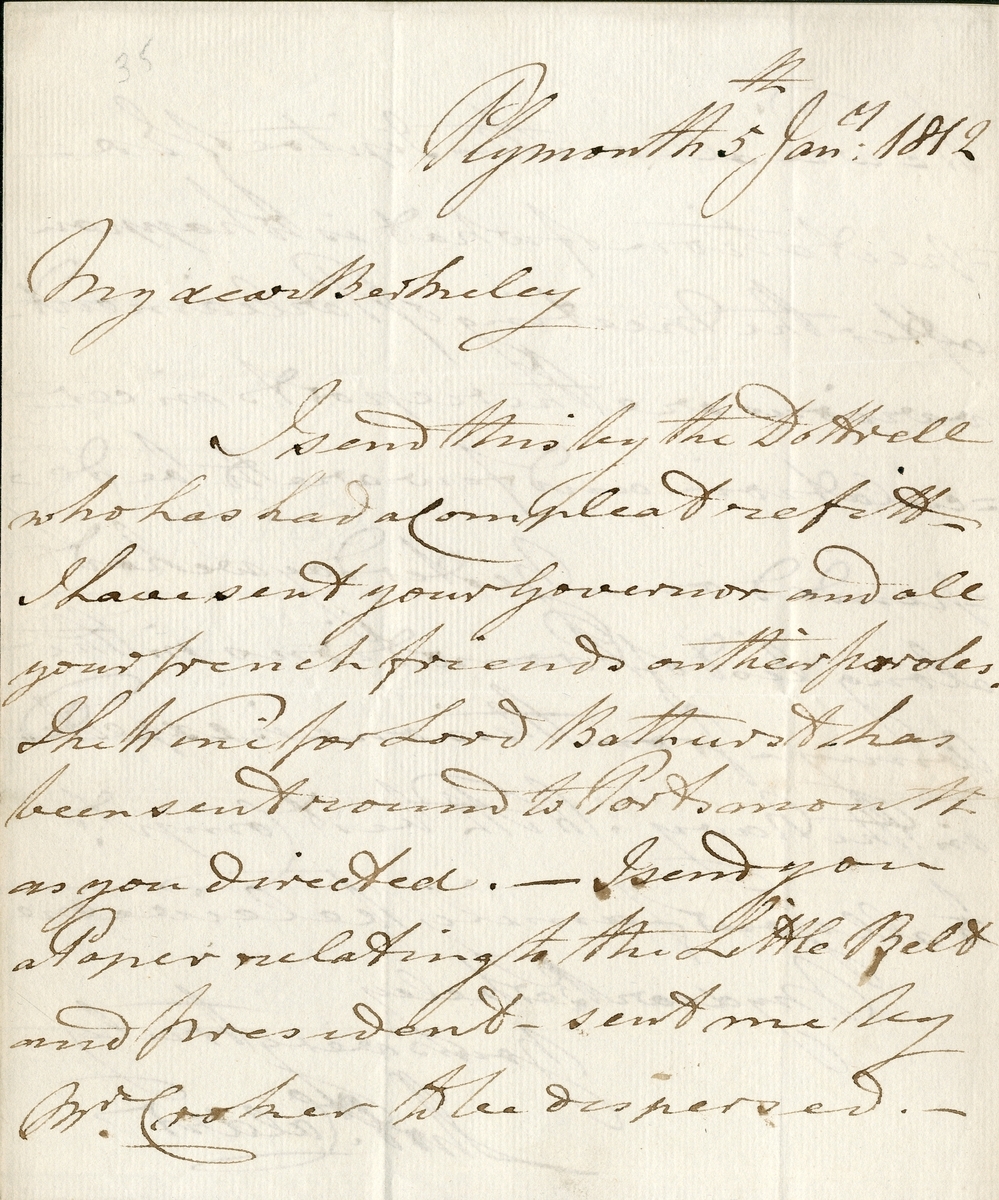 35
Plymouth 5th Jany: 1812
My dear Berkeley
I send this by the Dottrell
who has had a Compleat refitt -
I have sent your Governor and all
your french friends on their paroles.
The Wine for Lord Bathurst has
been sent round to Portsmouth
as you directed. — I send you
a Paper relating to the Little Belt
and President - sent me by
Mr. Croker to be dispersed. —